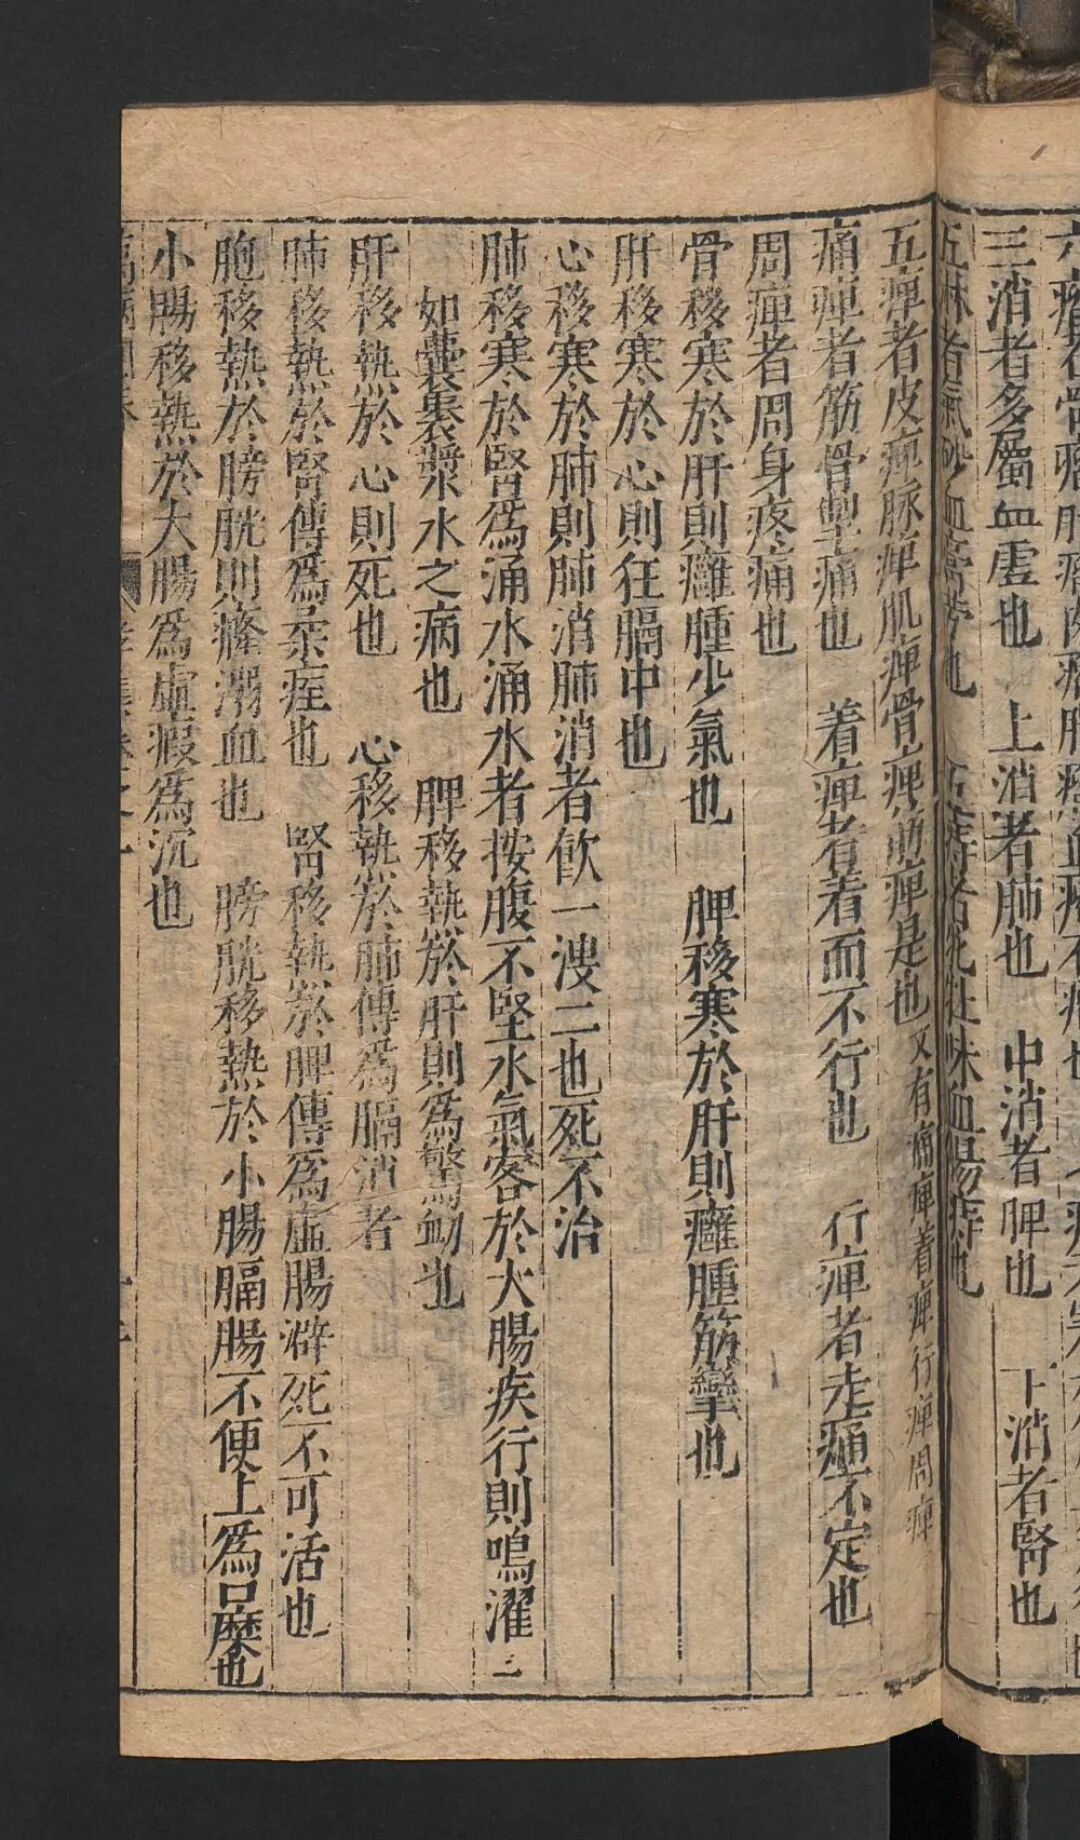 三消者多屬血虛也　上消者肺也　中消者脾也　下消者腎也
五淋者氣砂血膏勞也　五痔者牝牡脉血腸痔也
五痺者皮痺脉痺肌痺骨痺筋痺是也又有痛痺着痺行痺周痺
痛痺者筋骨掣痛也　着痺者着而不行也　行痺者走痛不定也
周痺者周身疼痛也
骨移寒於肝則癰腫少氣也　脾移寒於肝則癰腫筋攣也
肝移寒於心則狂膈中也
心移寒於肺則肺消肺消者飲一溲二也死不治
肺移寒於腎爲涌水涌水者按腹不堅水氣客於大腸疾行則鳴濯〻
如囊裹漿水之病也　脾移熱於肝則爲驚衄也
肝移熱於心則死也　心移熱於肺傳爲膈消者
肺移熱於腎傳爲柔痓也　腎移熱於脾傳爲虛腸澼死不可活也
胞移熱於膀胱則癃溺血也　膀胱移熱於小腸膈腸不便上爲口糜也
小腸移熱於大腸爲虛瘕爲沉也